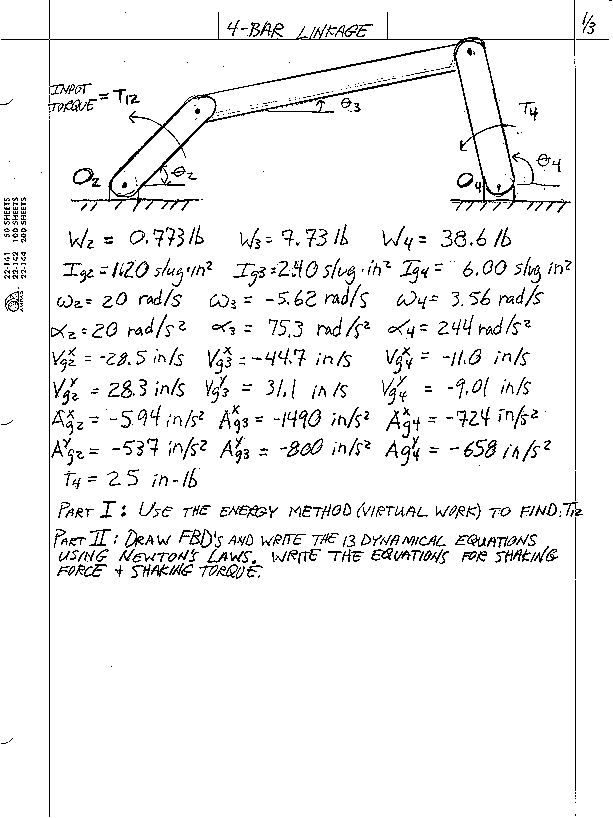 4-BAR LINKAGE
1/3
INPUT
TORQUE = T12
θ3
T4
θ2
θ4
O2
O4
22-141 50 SHEETS
22-142 100 SHEETS
22-144 200 SHEETS
W2 = 0.773 lb W3 = 7.73 lb W4 = 38.6 lb
Ig2 = 1.20 slug·in² Ig3 = 2.40 slug·in² Ig4 = 6.00 slug in²
ω2 = 20 rad/s ω3 = -5.62 rad/s ω4 = 3.56 rad/s
α2 = 20 rad/s² α3 = 75.3 rad/s² α4 = 244 rad/s²
Vg2ˣ = -28.5 in/s Vg3ˣ = -44.7 in/s Vg4ˣ = -11.0 in/s
Vg2ʸ = 28.3 in/s Vg3ʸ = 31.1 in/s Vg4ʸ = -9.01 in/s
Ag2ˣ = -594 in/s² Ag3ˣ = -1490 in/s² Ag4ˣ = -724 in/s²
Ag2ʸ = -537 in/s² Ag3ʸ = -800 in/s² Ag4ʸ = -658 in/s²
T4 = 25 in-lb
PART I: USE THE ENERGY METHOD (VIRTUAL WORK) TO FIND T12
PART II: DRAW FBD'S AND WRITE THE 13 DYNAMICAL EQUATIONS
USING NEWTON'S LAWS. WRITE THE EQUATIONS FOR SHAKING
FORCE + SHAKING TORQUE.